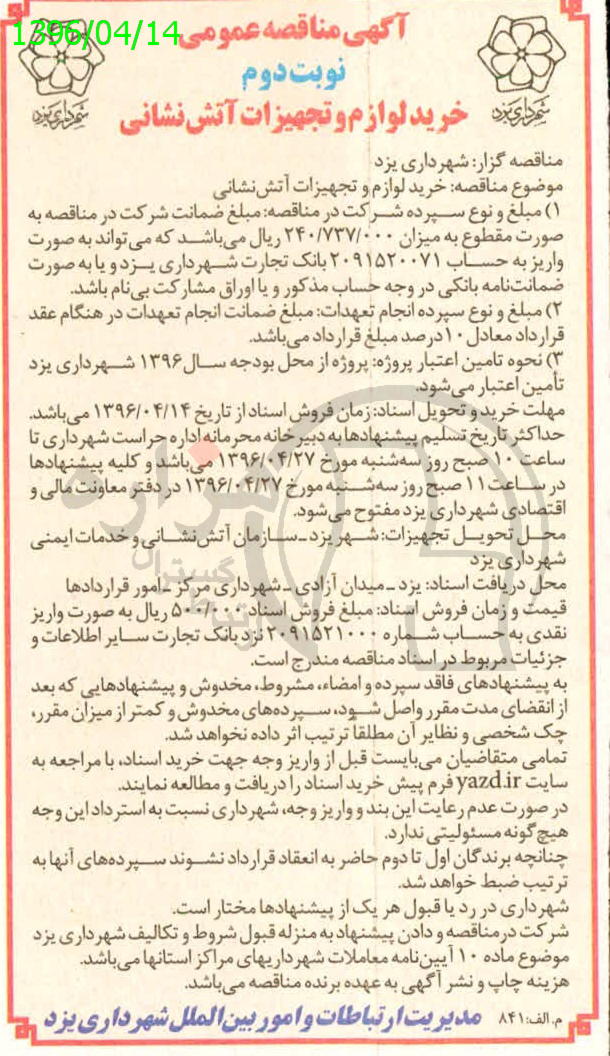 1396/04/14
آگهی مناقصه عمومی
نوبت دوم
خرید لوازم و تجهیزات آتش‌نشانی
شهرداری یزد
شهرداری یزد
مناقصه گزار: شهرداری یزد
موضوع مناقصه: خرید لوازم و تجهیزات آتش‌نشانی
۱) مبلغ و نوع سپرده شرکت در مناقصه: مبلغ ضمانت شرکت در مناقصه به
صورت مقطوع به میزان ۲۴۰/۷۳۷/۰۰۰ ریال می‌باشد که می‌تواند به صورت
واریز به حساب ۲۰۹۱۵۲۰۰۷۱ بانک تجارت شهرداری یزد و یا به صورت
ضمانت‌نامه بانکی در وجه حساب مذکور و یا اوراق مشارکت بی‌نام باشد.
۲) مبلغ و نوع سپرده انجام تعهدات: مبلغ ضمانت انجام تعهدات در هنگام عقد
قرارداد معادل ۱۰درصد مبلغ قرارداد می‌باشد.
۳) نحوه تامین اعتبار پروژه: پروژه از محل بودجه سال ۱۳۹۶ شهرداری یزد
تأمین اعتبار می‌شود.
مهلت خرید و تحویل اسناد: زمان فروش اسناد از تاریخ ۱۳۹۶/۰۴/۱۴ می‌باشد.
حداکثر تاریخ تسلیم پیشنهادها به دبیرخانه محرمانه اداره حراست شهرداری تا
ساعت ۱۰ صبح روز سه‌شنبه مورخ ۱۳۹۶/۰۴/۲۷ می‌باشد و کلیه پیشنهادها
در ساعت ۱۱ صبح روز سه‌شنبه مورخ ۱۳۹۶/۰۴/۲۷ در دفتر معاونت مالی و
اقتصادی شهرداری یزد مفتوح می‌شود.
محل تحویل تجهیزات: شهر یزد ـ سازمان آتش‌نشانی و خدمات ایمنی
شهرداری یزد
محل دریافت اسناد: یزد ـ میدان آزادی ـ شهرداری مرکز ـ امور قراردادها
قیمت و زمان فروش اسناد: مبلغ فروش اسناد ۵۰۰/۰۰۰ ریال به صورت واریز
نقدی به حساب شماره ۲۰۹۱۵۲۱۰۰۰ نزد بانک تجارت سایر اطلاعات و
جزئیات مربوط در اسناد مناقصه مندرج است.
به پیشنهادهای فاقد سپرده و امضاء، مشروط، مخدوش و پیشنهادهایی که بعد
از انقضای مدت مقرر واصل شود، سپرده‌های مخدوش و کمتر از میزان مقرر،
چک شخصی و نظایر آن مطلقاً ترتیب اثر داده نخواهد شد.
تمامی متقاضیان می‌بایست قبل از واریز وجه جهت خرید اسناد، با مراجعه به
سایت yazd.ir فرم پیش خرید اسناد را دریافت و مطالعه نمایند.
در صورت عدم رعایت این بند و واریز وجه، شهرداری نسبت به استرداد این وجه
هیچ‌گونه مسئولیتی ندارد.
چنانچه برندگان اول تا دوم حاضر به انعقاد قرارداد نشوند سپرده‌های آنها به
ترتیب ضبط خواهد شد.
شهرداری در رد یا قبول هر یک از پیشنهادها مختار است.
شرکت در مناقصه و دادن پیشنهاد به منزله قبول شروط و تکالیف شهرداری یزد
موضوع ماده ۱۰ آیین‌نامه معاملات شهرداریهای مراکز استانها می‌باشد.
هزینه چاپ و نشر آگهی به عهده برنده مناقصه می‌باشد.
م.الف: ۸۴۱ مدیریت ارتباطات و امور بین‌الملل شهرداری یزد